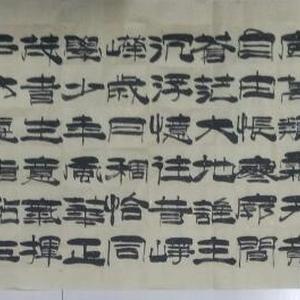 自由悵寥廓問
蒼茫大地誰主
沉浮憶往昔崢
嶸歲月稠恰同
學少年風華正
茂書生意氣揮